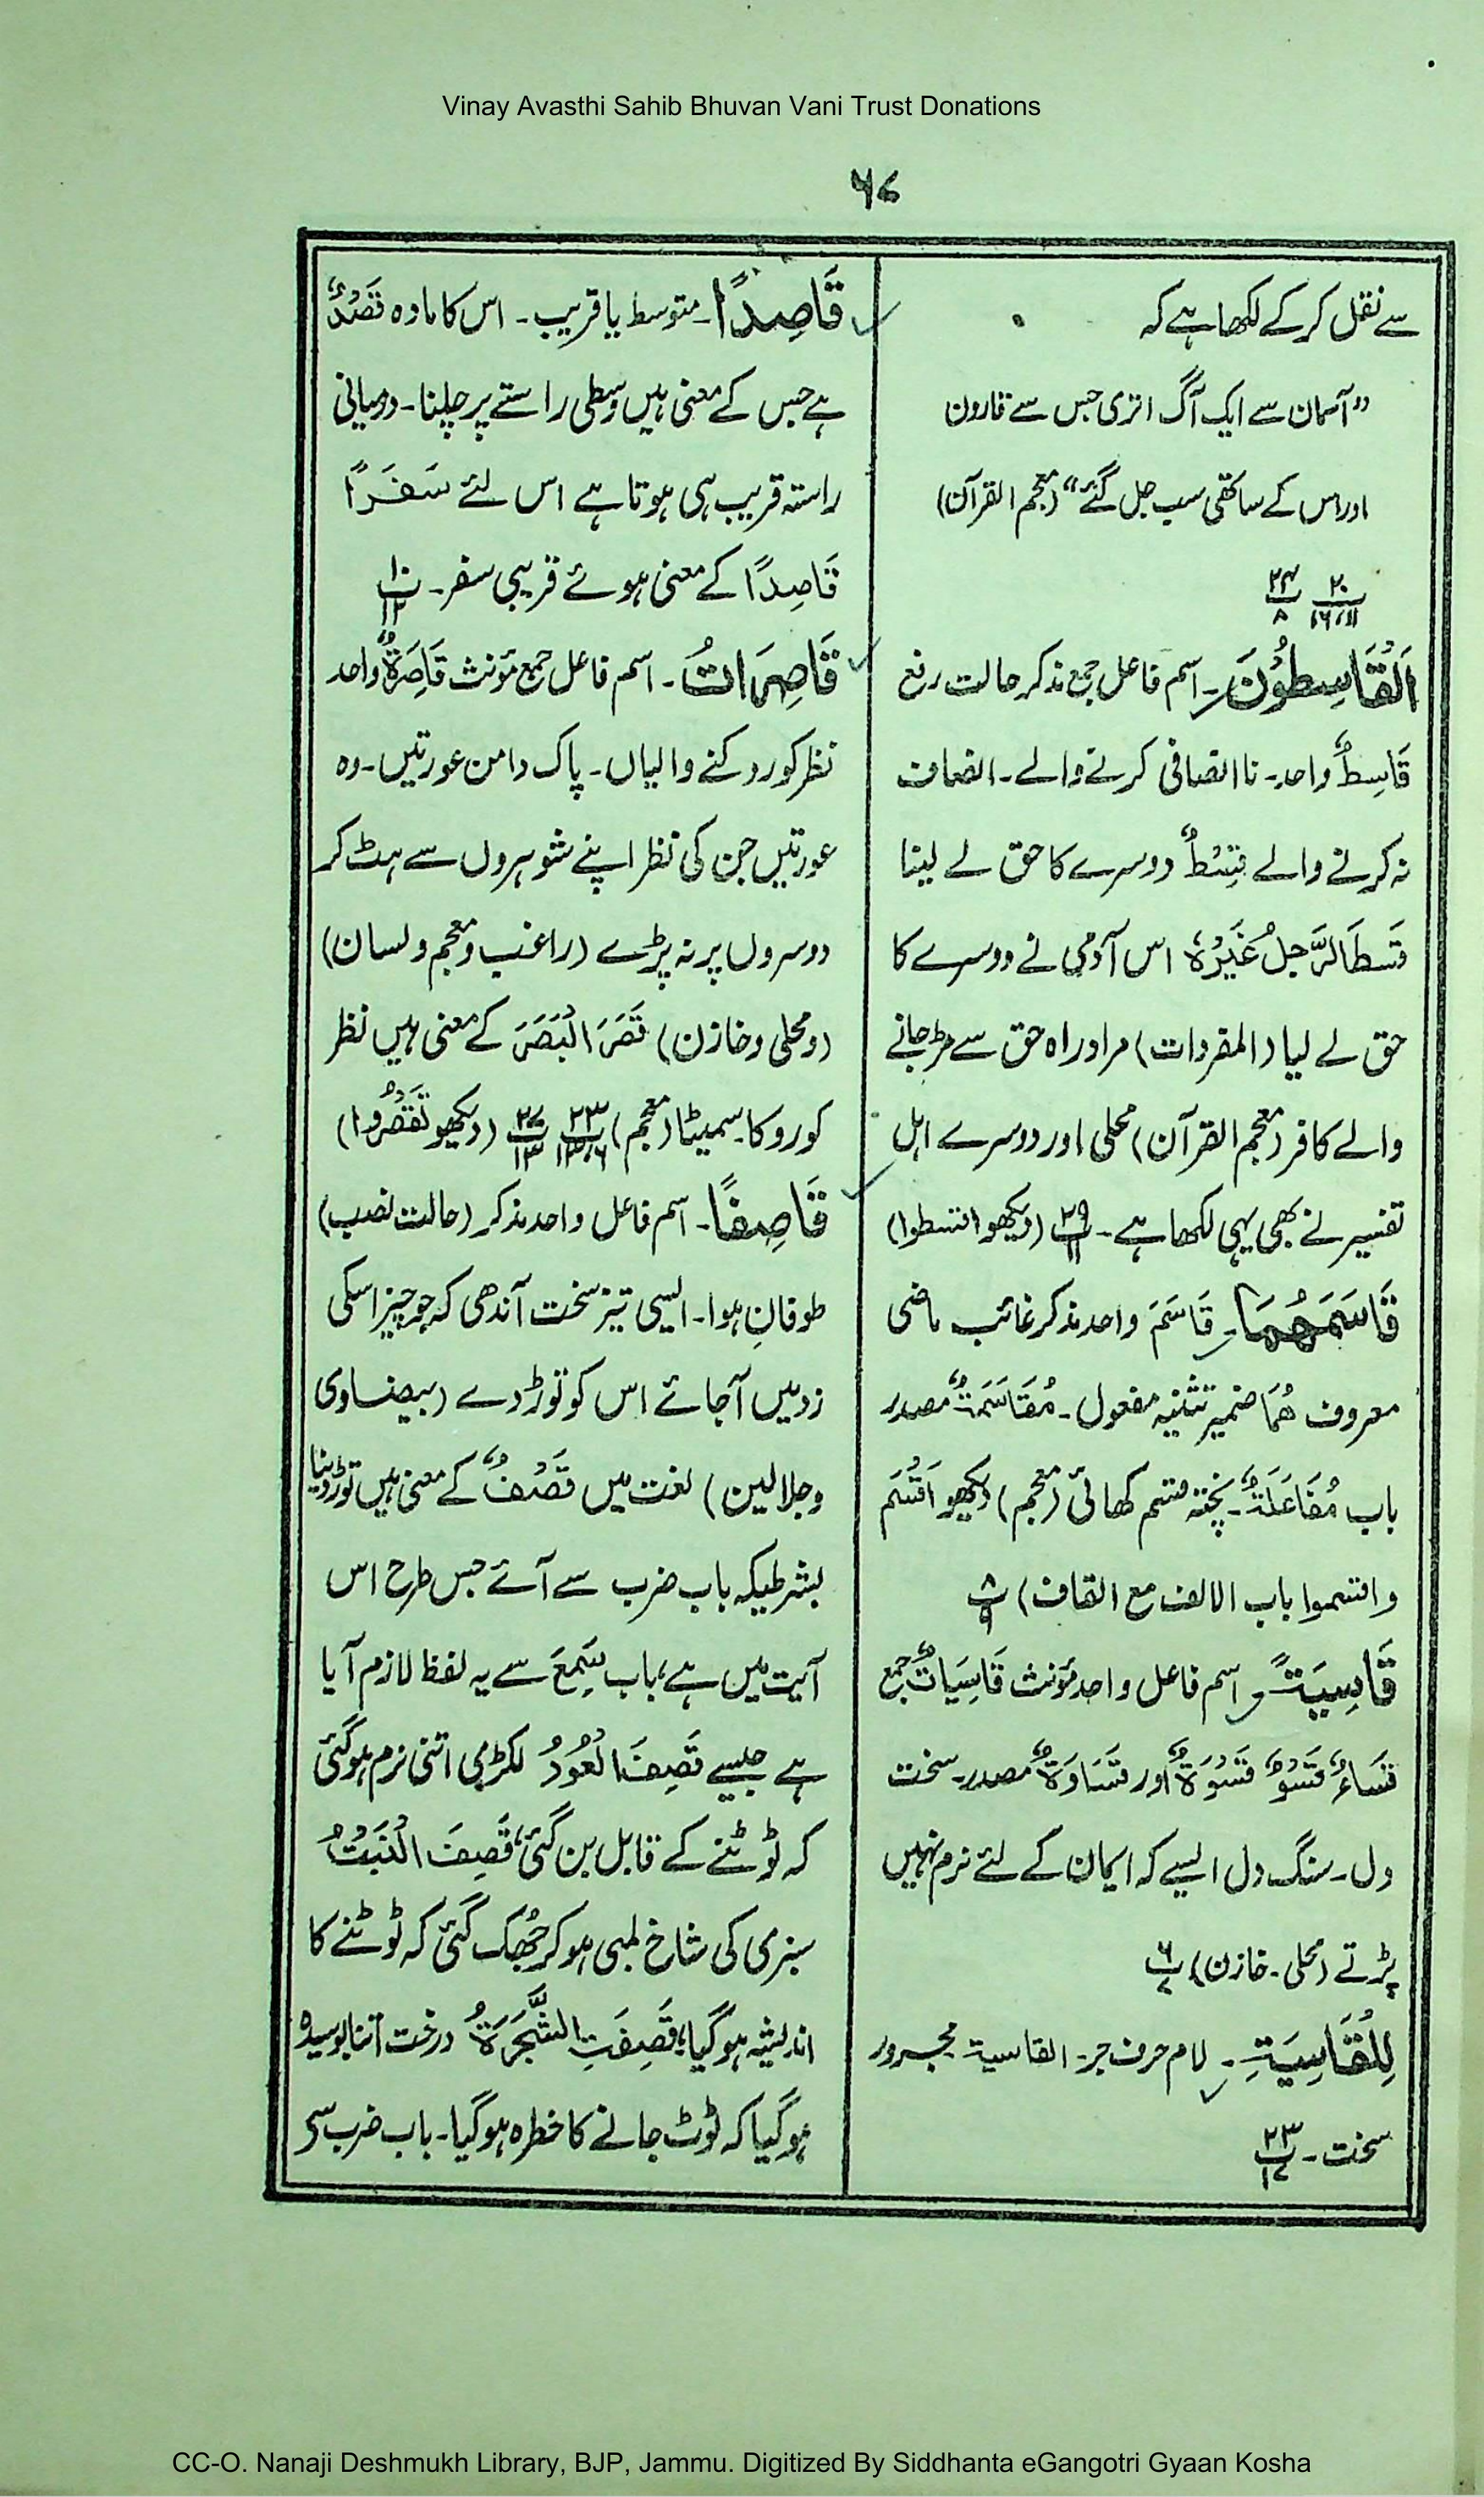 Vinay Avasthi Sahib Bhuvan Vani Trust Donations
۶۷
سے نقل کرکے لکھا ہے کہ
”آسمان سے ایک آگ اتری جس سے قارون
اور اس کے ساتھی سب جل گئے“ (معجم القرآن)
۲۰ / ۱۱،۱۶ ۲۴ / ۸
اَلْقَاسِطُوْنَ۔ اسم فاعل جمع مذکر حالت رفع
قَاسِطٌ واحد۔ نا انصافی کرنے والے۔ انصاف
نہ کرنے والے قِسْطٌ دوسرے کا حق لے لینا
قَسَطَ الرَّجُلُ غَیْرَہٗ اس آدمی نے دوسرے کا
حق لے لیا (المفردات) مراد راہ حق سے مڑ جانے
والے کافر (معجم القرآن) محلی اور دوسرے اہل
تفسیر نے بھی یہی لکھا ہے۔ پ۲۹ / ۱۱ (دیکھو اقسطوا)
قَاسَمَھُمَا۔ قَاسَمَ واحد مذکر غائب ماضی
معروف ھُمَا ضمیر تثنیہ مفعول۔ مُقَاسَمَۃٌ مصدر
باب مُفَاعَلَۃٌ۔ پختہ قسم کھائی (معجم) دیکھو اَقْسَمَ
واقسموا باب الالف مع القاف) پ۸ / ۹
قَاسِیَۃً۔ اسم فاعل واحد مؤنث قَاسِیَاتٌ جمع
قَسَاءٌ قَسْوٌ قَسْوَۃٌ اور قَسَاوَۃٌ مصدر۔ سخت
دل۔ سنگ دل ایسے کہ ایمان کے لئے نرم نہیں
پڑتے (محلی۔ خازن) پ۶ / ۷
لِلْقَاسِیَۃِ۔ لام حرف جر۔ القاسیۃ مجرور
سخت۔ پ۲۳ / ۱۷
قَاصِدًا۔ متوسط یا قریب۔ اس کا مادہ قَصْدٌ
ہے جس کے معنی ہیں وسطی راستے پر چلنا۔ درمیانی
راستہ قریب ہی ہوتا ہے اس لئے سَفَرًا
قَاصِدًا کے معنی ہوئے قریبی سفر۔ پ۱۰ / ۱۲
قَاصِرَاتُ۔ اسم فاعل جمع مؤنث قَاصِرَۃٌ واحد
نظر کو روکنے والیاں۔ پاک دامن عورتیں۔ وہ
عورتیں جن کی نظر اپنے شوہروں سے ہٹ کر
دوسروں پر نہ پڑے (راغب و معجم و لسان)
(و محلی و خازن) قَصَرَ الْبَصَرَ کے معنی ہیں نظر
کو روکا۔ سمیٹا (معجم) پ۲۳ / ۶،۱۳ پ۲۷ / ۱۳ (دیکھو تَقْصُرُوا)
قَاصِفًا۔ اسم فاعل واحد مذکر (حالت نصب)
طوفانِ ہوا۔ ایسی تیز سخت آندھی کہ جو چیز اسکی
زد میں آجائے اس کو توڑ دے (بیضاوی
وجلالین) لغت میں قَصْفٌ کے معنی ہیں توڑ دینا
بشرطیکہ باب ضرب سے آئے جس طرح اس
آیت میں ہے، باب سَمِعَ سے یہ لفظ لازم آیا
ہے جیسے قَصِفَ الْعُوْدُ لکڑی اتنی نرم ہوگئی
کہ ٹوٹنے کے قابل بن گئی، قَصِفَ النَّبَتُ
سبزی کی شاخ لمبی ہوکر جُھک گئی کہ ٹوٹنے کا
اندیشہ ہوگیا، قَصِفَتِ الشَّجَرَۃُ درخت اتنا بوسیدہ
ہوگیا کہ ٹوٹ جانے کا خطرہ ہوگیا۔ باب ضرب سے
CC-O. Nanaji Deshmukh Library, BJP, Jammu. Digitized By Siddhanta eGangotri Gyaan Kosha